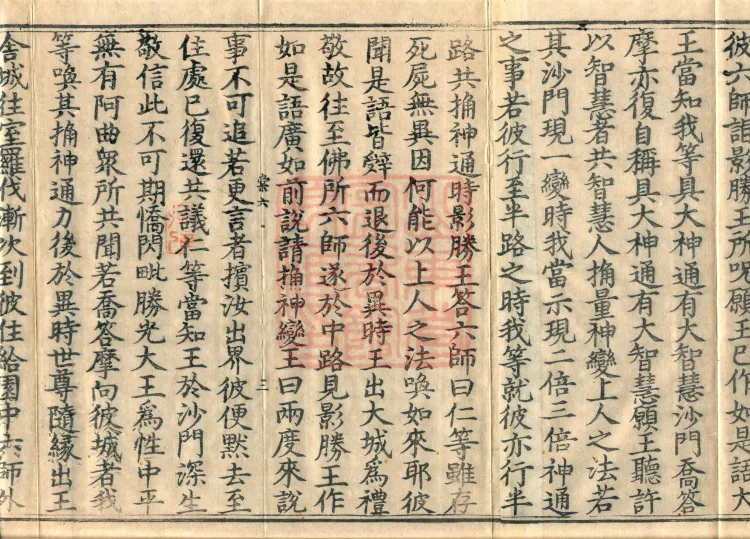 彼六師詣影勝王所呪願王已作如是語大
王當知我等具大神通有大智慧沙門喬答
摩亦復自稱具大神通有大智慧願王聽許
以智慧者共智慧人捔量神變上人之法若
其沙門現一變時我當示現二倍三倍神通
之事若彼行至半路之時我等就彼亦行半
路共捔神通時影勝王答六師曰仁等雖存
死屍無異因何能以上人之法喚如來耶彼
聞是語皆辤而退後於異時王出大城爲禮
敬故往至佛所六師遂於中路見影勝王作
如是語廣如前說請捔神變王曰兩度來說
棠六 二
事不可追若更言者擯汝出界彼便默去至
住處已復還共議仁等當知王於沙門深生
敬信此不可期憍閃毗勝光大王爲性中平
無有阿曲衆所共聞若喬答摩向彼城者我
等喚其捔神通力後於異時世尊隨緣出王
舍城往室羅伐漸次到彼住給園中六師外